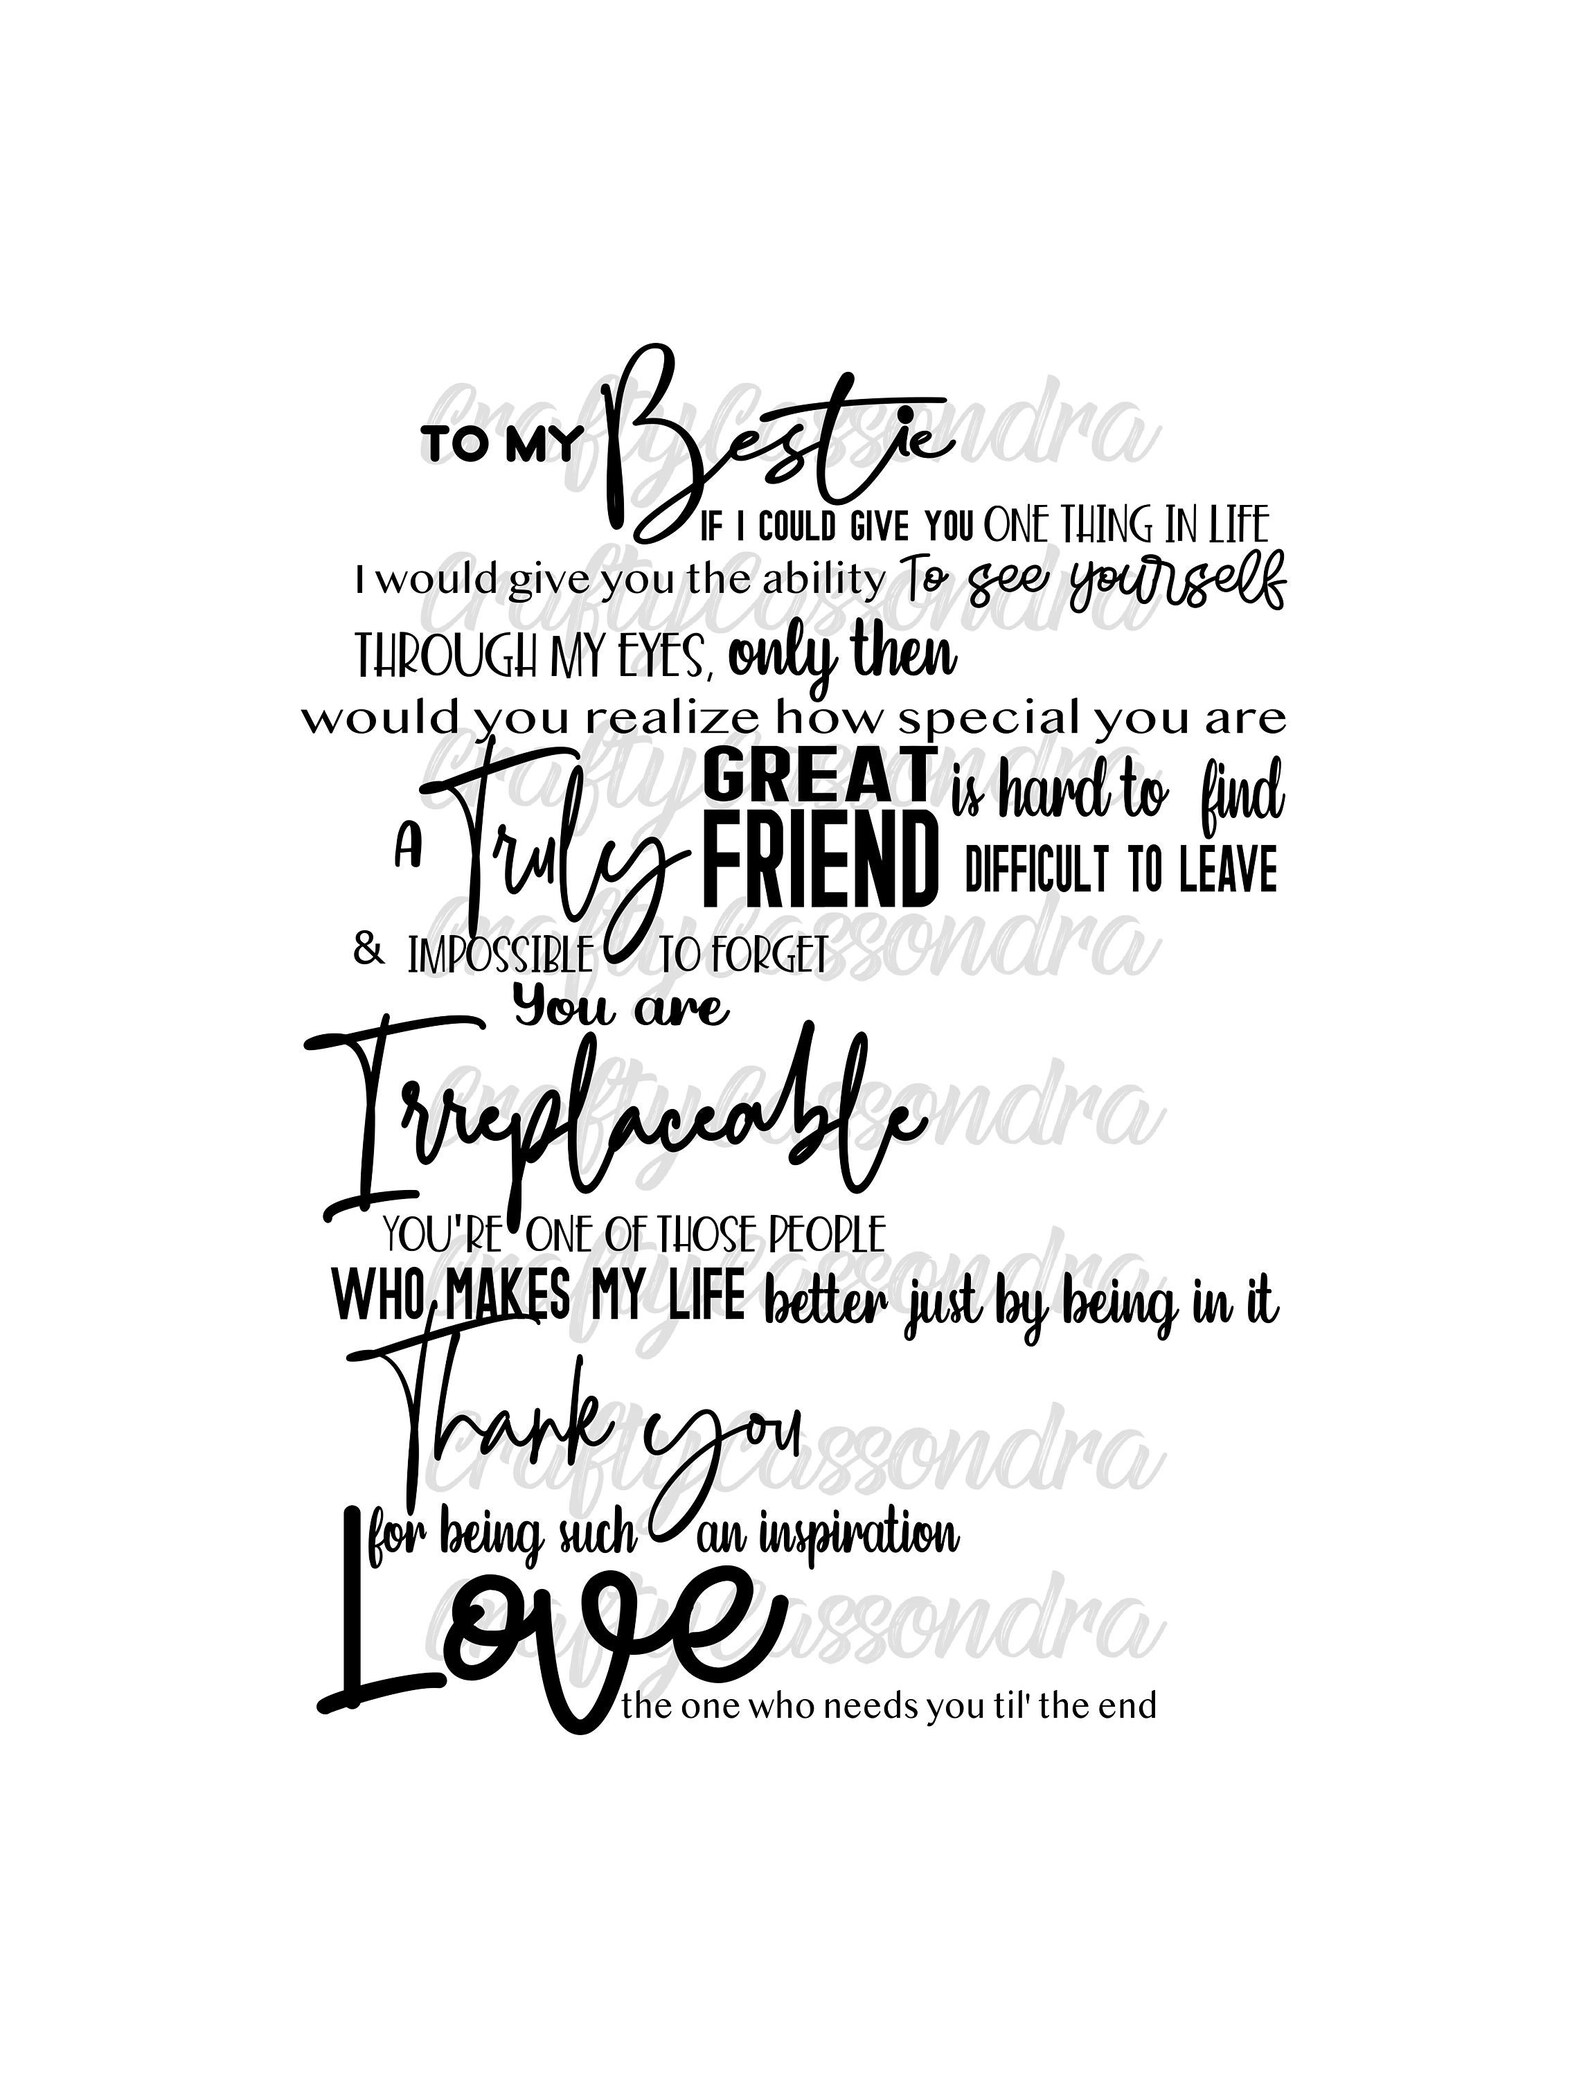 TO MY Bestie
IF I COULD GIVE YOU ONE THING IN LIFE
I would give you the ability To see yourself
THROUGH MY EYES, only then
would you realize how special you are
A Truly GREAT FRIEND is hard to find
DIFFICULT TO LEAVE
& IMPOSSIBLE TO FORGET
You are
Irreplaceable
YOU'RE ONE OF THOSE PEOPLE
WHO MAKES MY LIFE better just by being in it
Thank you
for being such an inspiration
Love
the one who needs you til' the end
craftyCassondra
craftyCassondra
craftyCassondra
craftyCassondra
craftyCassondra
craftyCassondra
craftyCassondra
craftyCassondra